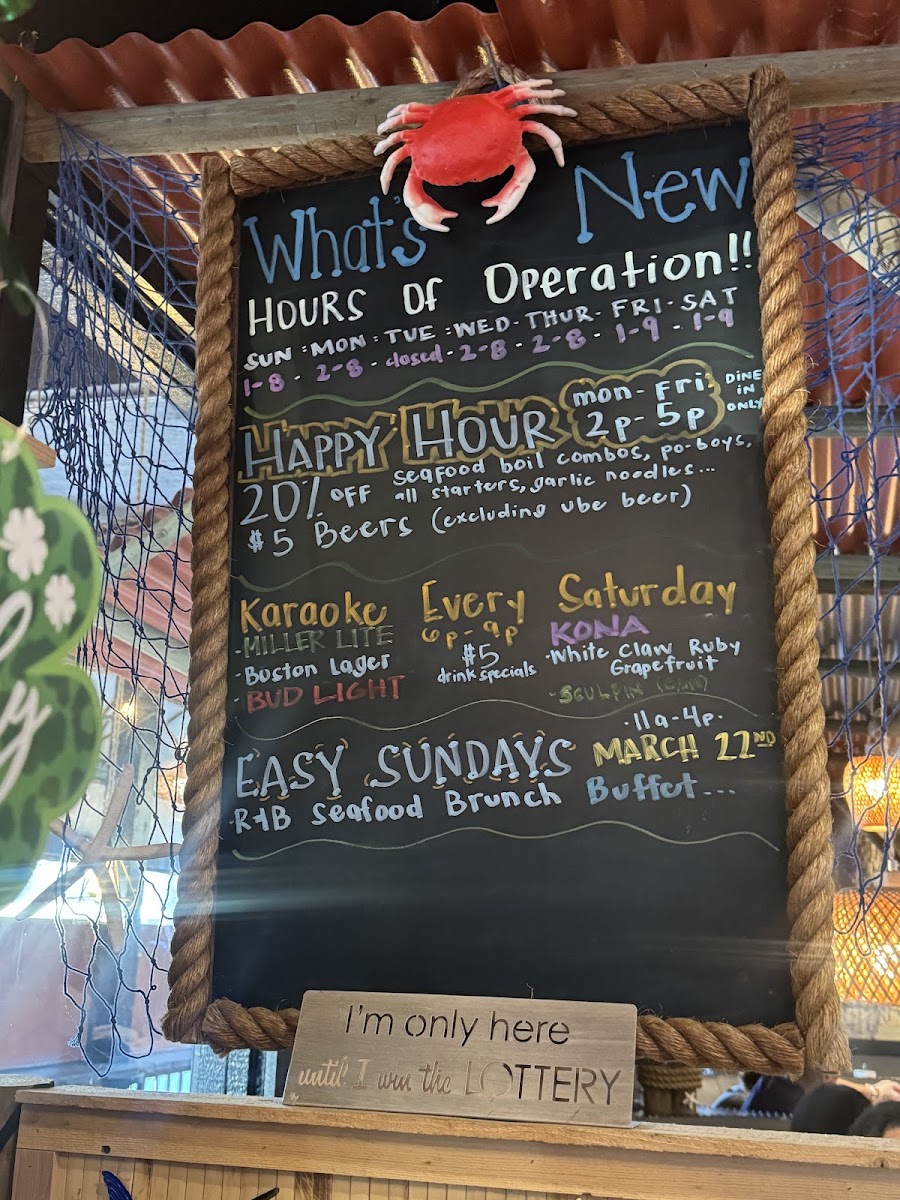 What's New
Hours Of Operation!!
SUN · MON · TUE · WED · THUR · FRI · SAT
1-8 · 2-8 · closed · 2-8 · 2-8 · 1-9 · 1-9
HAPPY HOUR mon-Fri
2p-5p
DINE
IN
ONLY
20% OFF seafood boil combos, po-boys,
all starters, garlic noodles...
$5 Beers (excluding ube beer)
Karaoke Every Saturday
6p-9p
$5
drink specials
·MILLER LITE
·Boston Lager
·BUD LIGHT
KONA
·White Claw Ruby
Grapefruit
·SCULPIN
EASY SUNDAYS MARCH 22ND
·11a-4p·
R&B Seafood Brunch Buffet...
I'm only here
until I win the LOTTERY